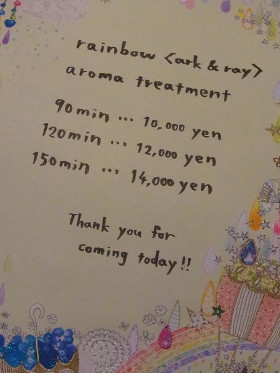 rainbow <ark & ray>
aroma treatment
90min ... 10,000 yen
120min ... 12,000 yen
150min ... 14,000 yen
Thank you for
coming today!!